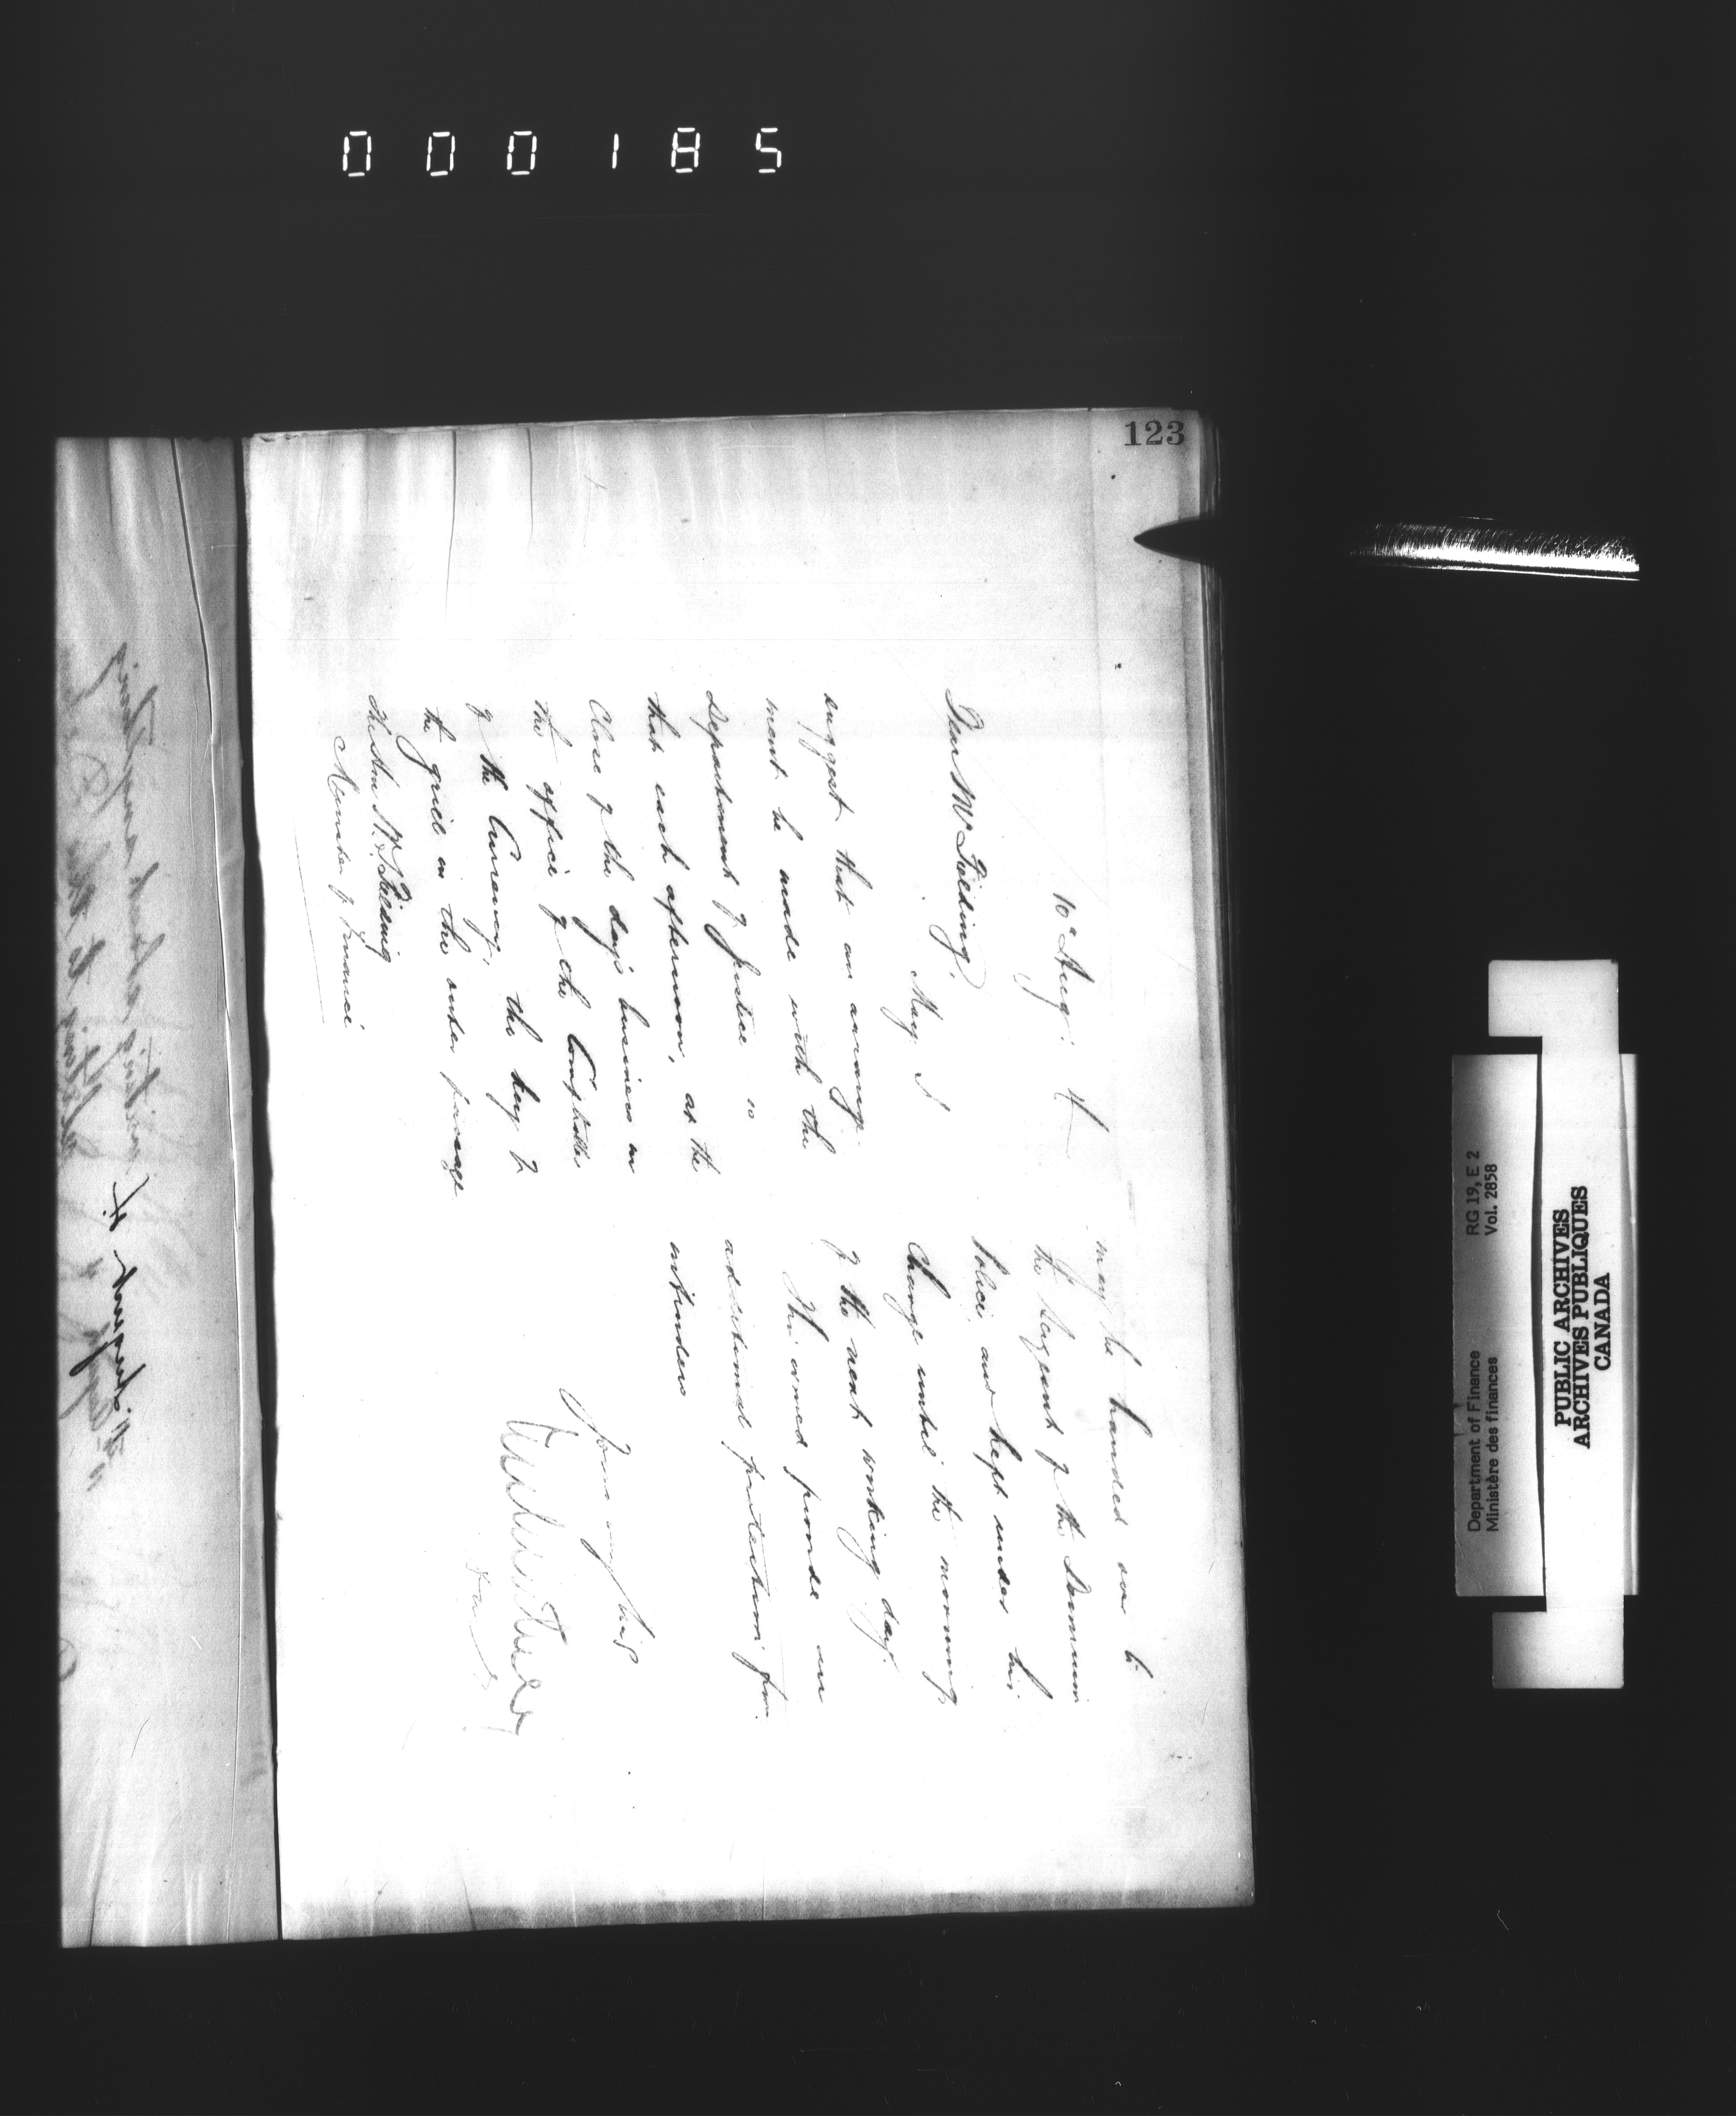 000185
123
10th Aug:
Dear Mr Fielding,
May I
suggest that an arrange-
ment be made with the
Department of Justice so
that each afternoon, at the
Close of the day's business in
the office of the Comptroller
of the Currency, the key of
the grill in the outer passage
The Hon W. S. Fielding
Minister of Finance
may be handed over to
the Sergeant of the Dominion
Police, and kept under his
Charge until the morning
of the next working day.
This would provide an
additional protection from
intruders
Yours
RG 19, E 2
Vol. 2858
Department of Finance
Ministère des finances
PUBLIC ARCHIVES
ARCHIVES PUBLIQUES
CANADA